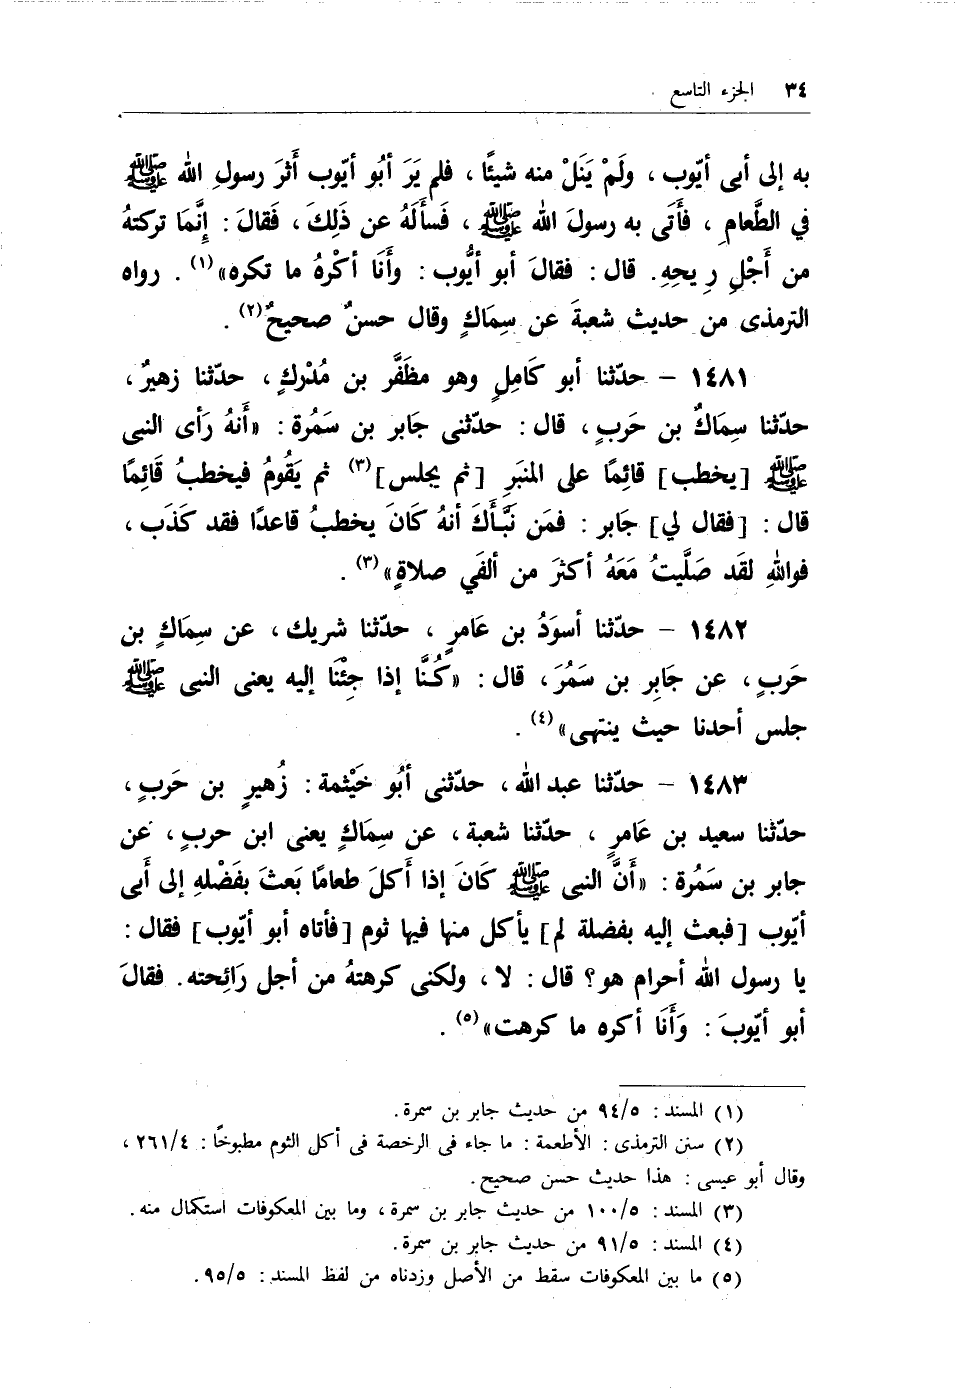 ٣٤ الجزء التاسع
به إلى أبى أيّوب ، ولَمْ يَنَلْ منه شيئًا ، فلم يَرَ أبُو أيّوب أثَرَ رسولِ الله ﷺ
في الطَّعامِ ، فأَتَى به رسولَ الله ﷺ ، فَسأَلَهُ عن ذَلِكَ ، فَقالَ : إِنَّمَا تركتهُ
من أَجْلِ رِيحِهِ. قال : فقالَ أبو أيُّوب : وأَنَا أكْرهُ ما تكره»(١) . رواه
الترمذى من حديث شعبةَ عن سِمَاكٍ وقال حسنٌ صحيحٌ(٢) .
١٤٨١ - حدّثنا أبو كَامِلٍ وهو مظَفَّر بن مُدْركٍ ، حدّثنا زهيرٌ ،
حدّثنا سِمَاكُ بن حَربٍ ، قال : حدّثنى جَابر بن سَمُرة : «أَنهُ رَأى النبى
ﷺ [يخطب] قائِمًا على المنبَرِ [ثم يجلس](٣) ثم يَقُومُ فيخطبُ قَائِمًا
قال : [فقال لي] جَابر : فمَن نَبَّأَكَ أنهُ كَانَ يخطبُ قاعدًا فقد كَذَب ،
فواللهِ لقَد صَلَّيتُ مَعَهُ أكثرَ من ألفَي صلاةٍ»(٣) .
١٤٨٢ - حدّثنا أسوَدُ بن عَامرٍ ، حدّثنا شريك ، عن سِمَاكٍ بن
حَربٍ ، عن جَابِر بن سَمُرَ ، قال : «كُنَّا إذا جِئْنَا إليه يعنى النبى ﷺ
جلس أحدنا حيث ينتهى»(٤) .
١٤٨٣ - حدّثنا عبد الله ، حدّثنى أبُو خَيْثمة : زُهيرٍ بن حَربٍ ،
حدّثنا سعيد بن عَامرٍ ، حدّثنا شعبة ، عن سِمَاكٍ يعنى ابن حربٍ ، عن
جابر بن سَمُرة : «أَنَّ النبى ﷺ كَانَ إذا أكلَ طعامًا بَعثَ بفَضْلهِ إلى أَبى
أيّوب [فبعث إليه بفضلة لم] يأكل منها فيها ثوم [فأتاه أبو أيّوب] فقال :
يا رسول الله أحرام هو؟ قال : لا ، ولكنى كرهتهُ من أجل رَائِحته. فقالَ
أبو أيّوبَ : وَأَنَا أكره ما كرهت»(٥) .
(١) المسند : ٩٤/٥ من حديث جابر بن سمرة.
(٢) سنن الترمذى : الأطعمة : ما جاء فى الرخصة فى أكل الثوم مطبوخًا : ٢٦١/٤ ،
وقال أبو عيسى : هذا حديث حسن صحيح.
(٣) المسند : ١٠٠/٥ من حديث جابر بن سمرة ، وما بين المعكوفات استكمال منه.
(٤) المسند : ٩١/٥ من حديث جابر بن سمرة.
(٥) ما بين المعكوفات سقط من الأصل وزدناه من لفظ المسند : ٩٥/٥.